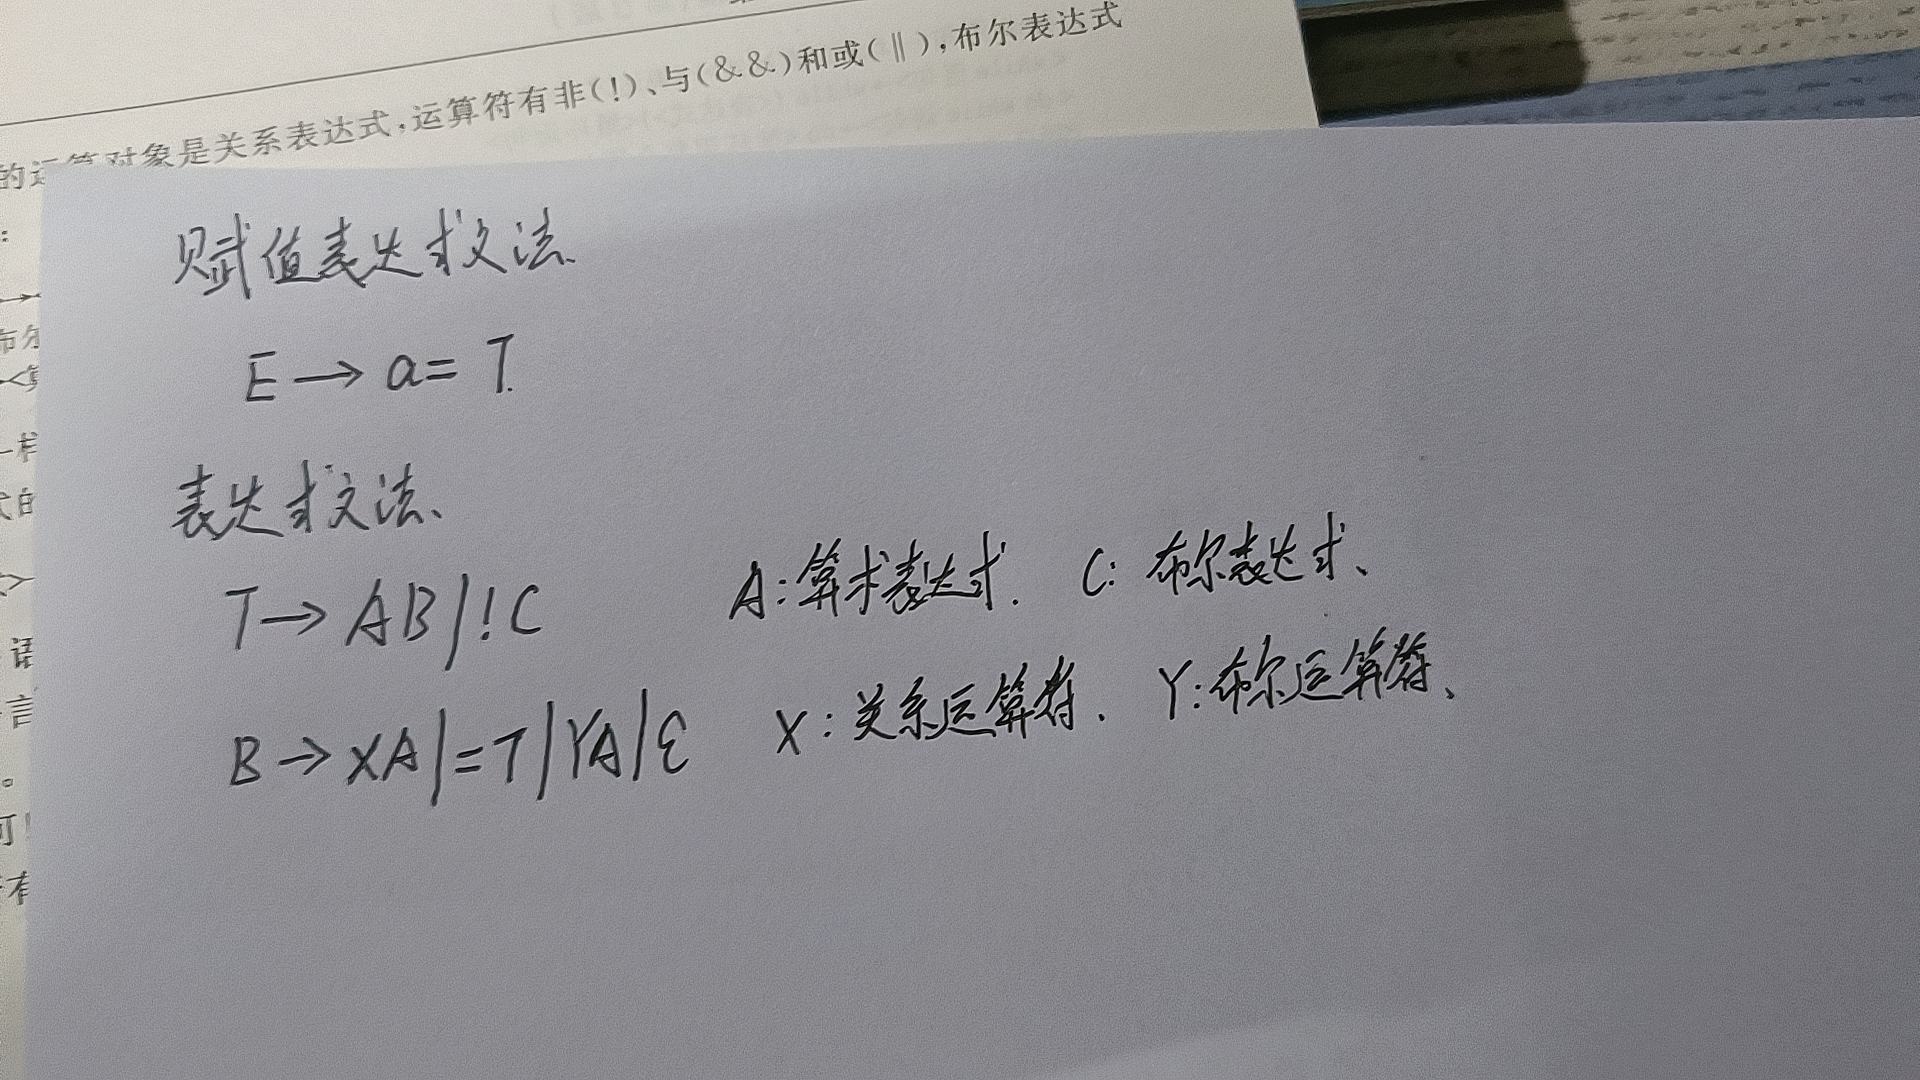 的运算对象是关系表达式,运算符有非(!)、与(&&)和或(‖),布尔表达式
赋值表达式文法、
E → a= T.
表达式文法、
T → AB | !C A:算术表达式. C: 布尔表达式、
B → XA | =T | YA | ε X:关系运算符. Y:布尔运算符、